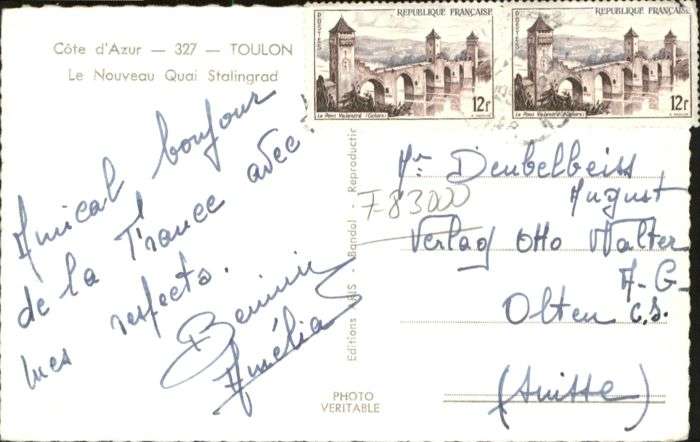 Côte d'Azur — 327 — TOULON
Le Nouveau Quai Stalingrad
Amical bonjour
de la France avec
mes respects.
Amélia
Editions - Bandol - Reproduction
PHOTO
VERITABLE
POSTES
REPUBLIQUE FRANÇAISE
12F
Le Pont Valentré (Cahors)
POSTES
REPUBLIQUE FRANÇAISE
12F
Le Pont Valentré (Cahors)
F83000
Mr Deubelbeiss
August
Verlag Otto Walter
A-G-
Olten C.S.
(Suisse)